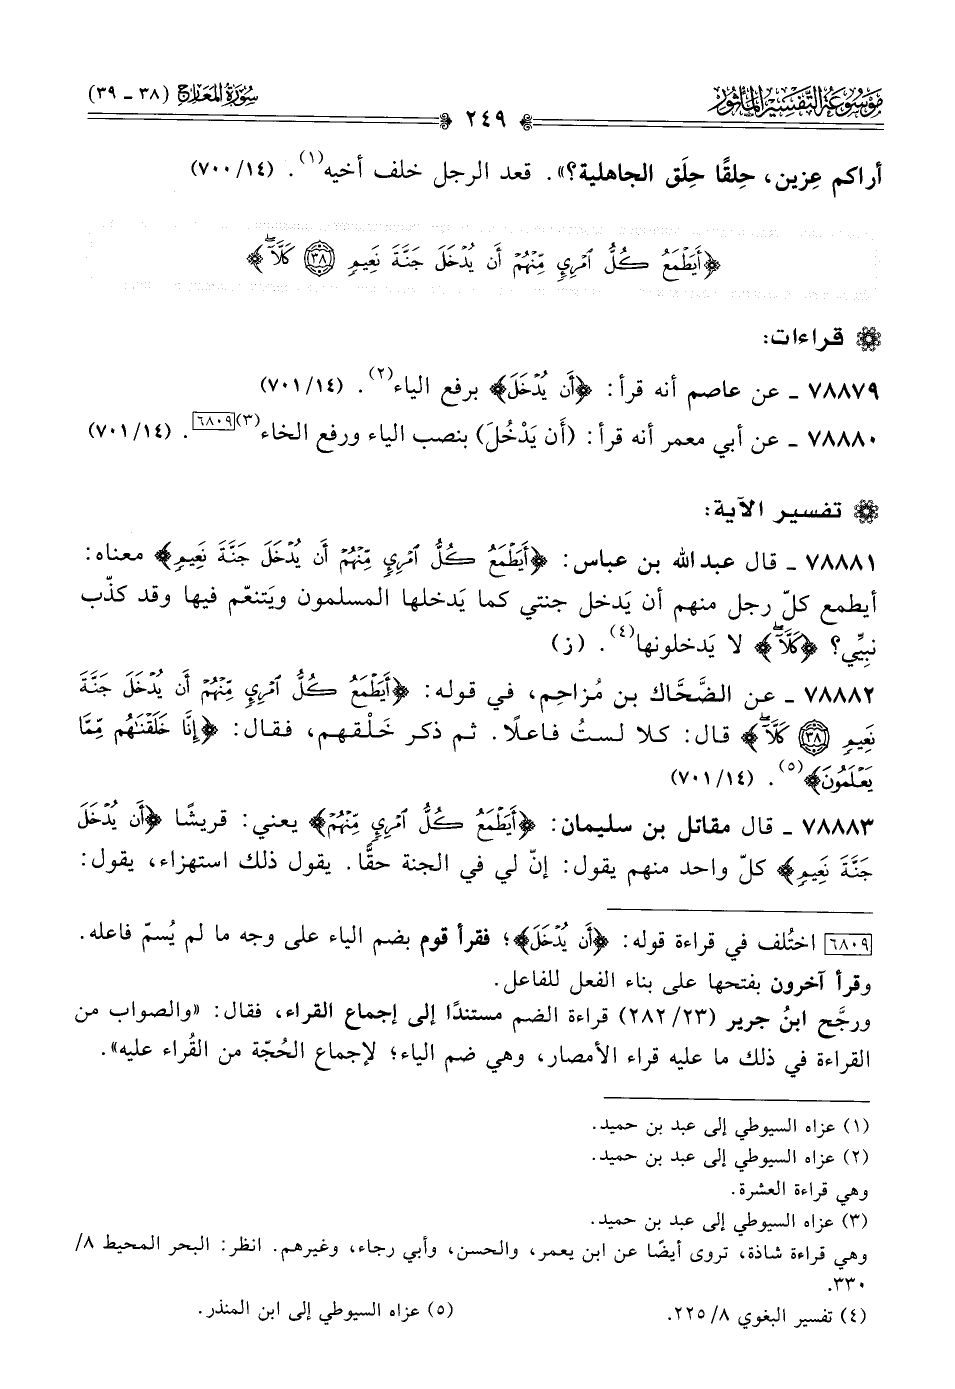 مَوْسُوعَة التَّفْسِير المَأْثُور
سُورَة المَعَارِج (٣٨ - ٣٩)
٢٤٩
أراكم عِزين، حِلقًا حِلَق الجاهلية؟». قعد الرجل خلف أخيه(١). (١٤/ ٧٠٠)
﴿أَيَطْمَعُ كُلُّ ٱمْرِيٍٕ مِّنْهُمْ أَن يُدْخَلَ جَنَّةَ نَعِيمٍ ٣٨ كَلَّآۖ﴾
قراءات:
٧٨٨٧٩ - عن عاصم أنه قرأ: ﴿أَن يُدْخَلَ﴾ برفع الياء(٢). (١٤/ ٧٠١)
٧٨٨٨٠ - عن أبي معمر أنه قرأ: (أَن يَدْخُلَ) بنصب الياء ورفع الخاء(٣)[٦٨٠٩]. (١٤/ ٧٠١)
تفسير الآية:
٧٨٨٨١ - قال عبد الله بن عباس: ﴿أَيَطْمَعُ كُلُّ ٱمْرِيٍٕ مِّنْهُمْ أَن يُدْخَلَ جَنَّةَ نَعِيمٍ﴾ معناه:
أيطمع كلّ رجل منهم أن يَدخل جنتي كما يَدخلها المسلمون ويَتنعّم فيها وقد كذّب
نبيِّي؟ ﴿كَلَّآۖ﴾ لا يَدخلونها(٤). (ز)
٧٨٨٨٢ - عن الضَّحَّاك بن مُزاحِم، في قوله: ﴿أَيَطْمَعُ كُلُّ ٱمْرِيٍٕ مِّنْهُمْ أَن يُدْخَلَ جَنَّةَ
نَعِيمٍ ٣٨ كَلَّآۖ﴾ قال: كلا لستُ فاعلًا. ثم ذكر خَلْقهم، فقال: ﴿إِنَّا خَلَقْنَٰهُم مِّمَّا
يَعْلَمُونَ﴾(٥). (١٤/ ٧٠١)
٧٨٨٨٣ - قال مقاتل بن سليمان: ﴿أَيَطْمَعُ كُلُّ ٱمْرِيٍٕ مِّنْهُمْ﴾ يعني: قريشًا ﴿أَن يُدْخَلَ
جَنَّةَ نَعِيمٍ﴾ كلّ واحد منهم يقول: إنّ لي في الجنة حقًّا. يقول ذلك استهزاء، يقول:
[٦٨٠٩] اختُلف في قراءة قوله: ﴿أَن يُدْخَلَ﴾؛ فقرأ قوم بضم الياء على وجه ما لم يُسمّ فاعله.
وقرأ آخرون بفتحها على بناء الفعل للفاعل.
ورجَّح ابنُ جرير (٢٣/ ٢٨٢) قراءة الضم مستندًا إلى إجماع القراء، فقال: «والصواب من
القراءة في ذلك ما عليه قراء الأمصار، وهي ضم الياء؛ لإجماع الحُجّة من القُراء عليه».
(١) عزاه السيوطي إلى عبد بن حميد.
(٢) عزاه السيوطي إلى عبد بن حميد.
وهي قراءة العشرة.
(٣) عزاه السيوطي إلى عبد بن حميد.
وهي قراءة شاذة، تروى أيضًا عن ابن يعمر، والحسن، وأبي رجاء، وغيرهم. انظر: البحر المحيط ٨/
٣٣٠.
(٤) تفسير البغوي ٨/ ٢٢٥. (٥) عزاه السيوطي إلى ابن المنذر.